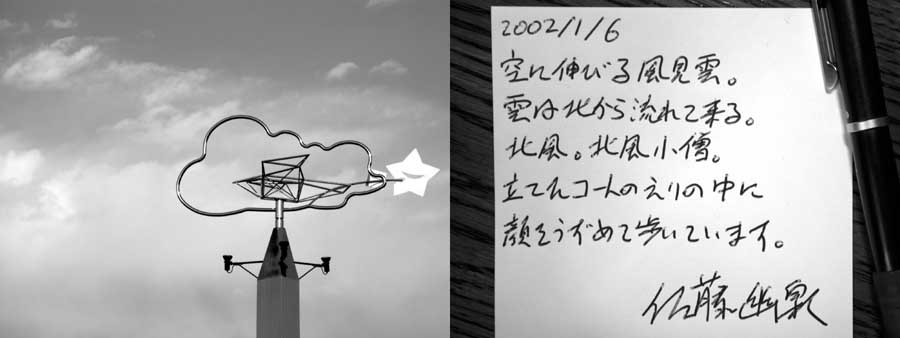 2002/1/6
空に伸びる風見雲。
雲は北から流れて来る。
北風。北風小僧。
立てたコートのえりの中に
顔をうずめて歩いています。
佐藤